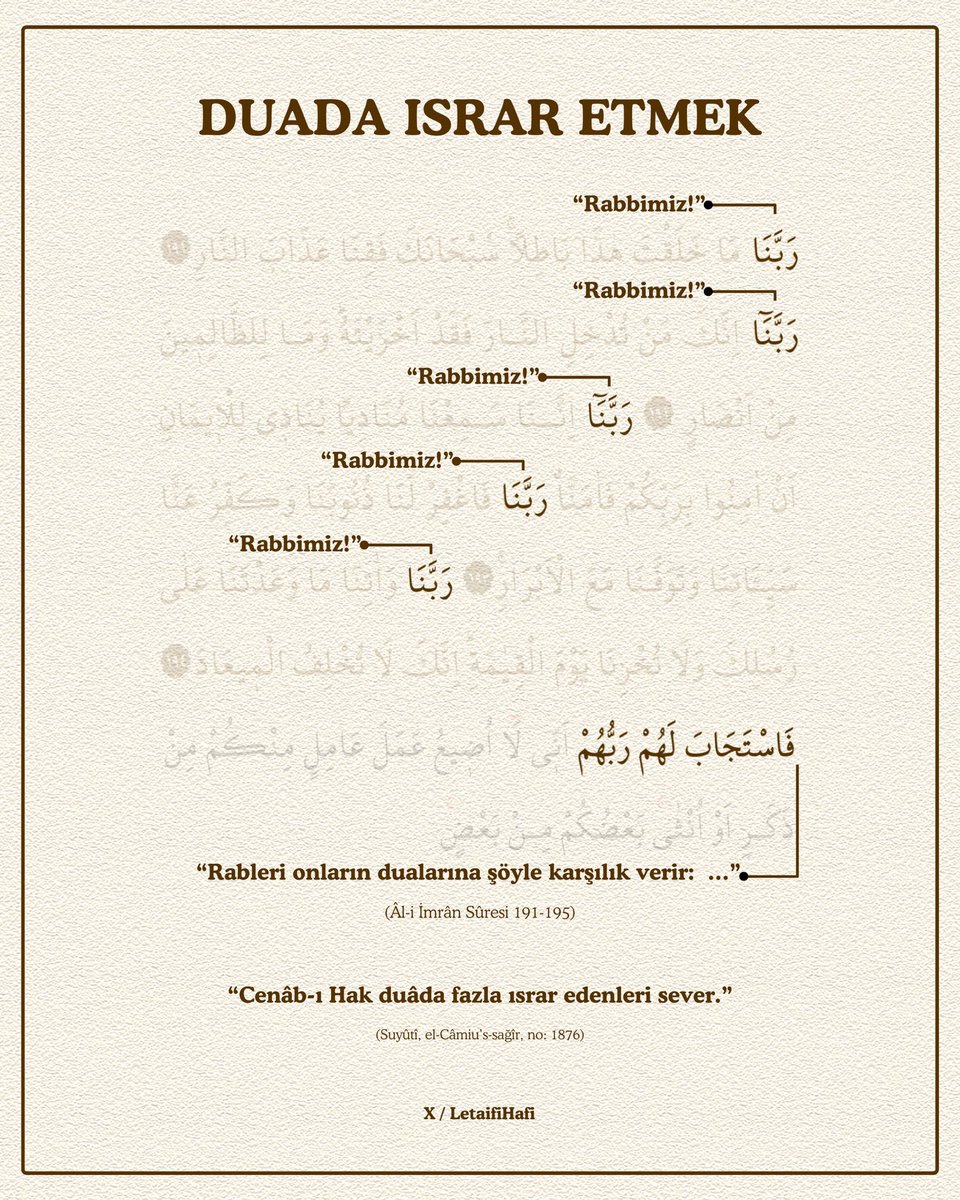 DUADA ISRAR ETMEK
“Rabbimiz!”
رَبَّنَا مَا خَلَقْتَ هٰذَا بَاطِلًاۚ سُبْحَانَكَ فَقِنَا عَذَابَ النَّارِ ﴿١٩١﴾
“Rabbimiz!”
رَبَّنَٓا اِنَّكَ مَنْ تُدْخِلِ النَّارَ فَقَدْ اَخْزَيْتَهُۜ وَمَا لِلظَّالِم۪ينَ
“Rabbimiz!”
مِنْ اَنْصَارٍ ﴿١٩٢﴾ رَبَّنَٓا اِنَّنَا سَمِعْنَا مُنَادِيًا يُنَاد۪ي لِلْا۪يمَانِ
“Rabbimiz!”
اَنْ اٰمِنُوا بِرَبِّكُمْ فَاٰمَنَّاۗ رَبَّنَا فَاغْفِرْ لَنَا ذُنُوبَنَا وَكَفِّرْ عَنَّا
“Rabbimiz!”
سَيِّـَٔاتِنَا وَتَوَفَّنَا مَعَ الْاَبْرَارِۚ ﴿١٩٣﴾ رَبَّنَا وَاٰتِنَا مَا وَعَدْتَنَا عَلٰى
رُسُلِكَ وَلَا تُخْزِنَا يَوْمَ الْقِيٰمَةِۜ اِنَّكَ لَا تُخْلِفُ الْم۪يعَادَ ﴿١٩٤﴾
فَاسْتَجَابَ لَهُمْ رَبُّهُمْ اَنّ۪ي لَٓا اُض۪يعُ عَمَلَ عَامِلٍ مِنْكُمْ مِنْ
ذَكَرٍ اَوْ اُنْثٰىۚ بَعْضُكُمْ مِنْ بَعْضٍۚ
“Rableri onların dualarına şöyle karşılık verir: ...”
(Âl-i İmrân Sûresi 191-195)
“Cenâb-ı Hak duâda fazla ısrar edenleri sever.”
(Suyûtî, el-Câmiu's-sağîr, no: 1876)
X / LetaifiHafi